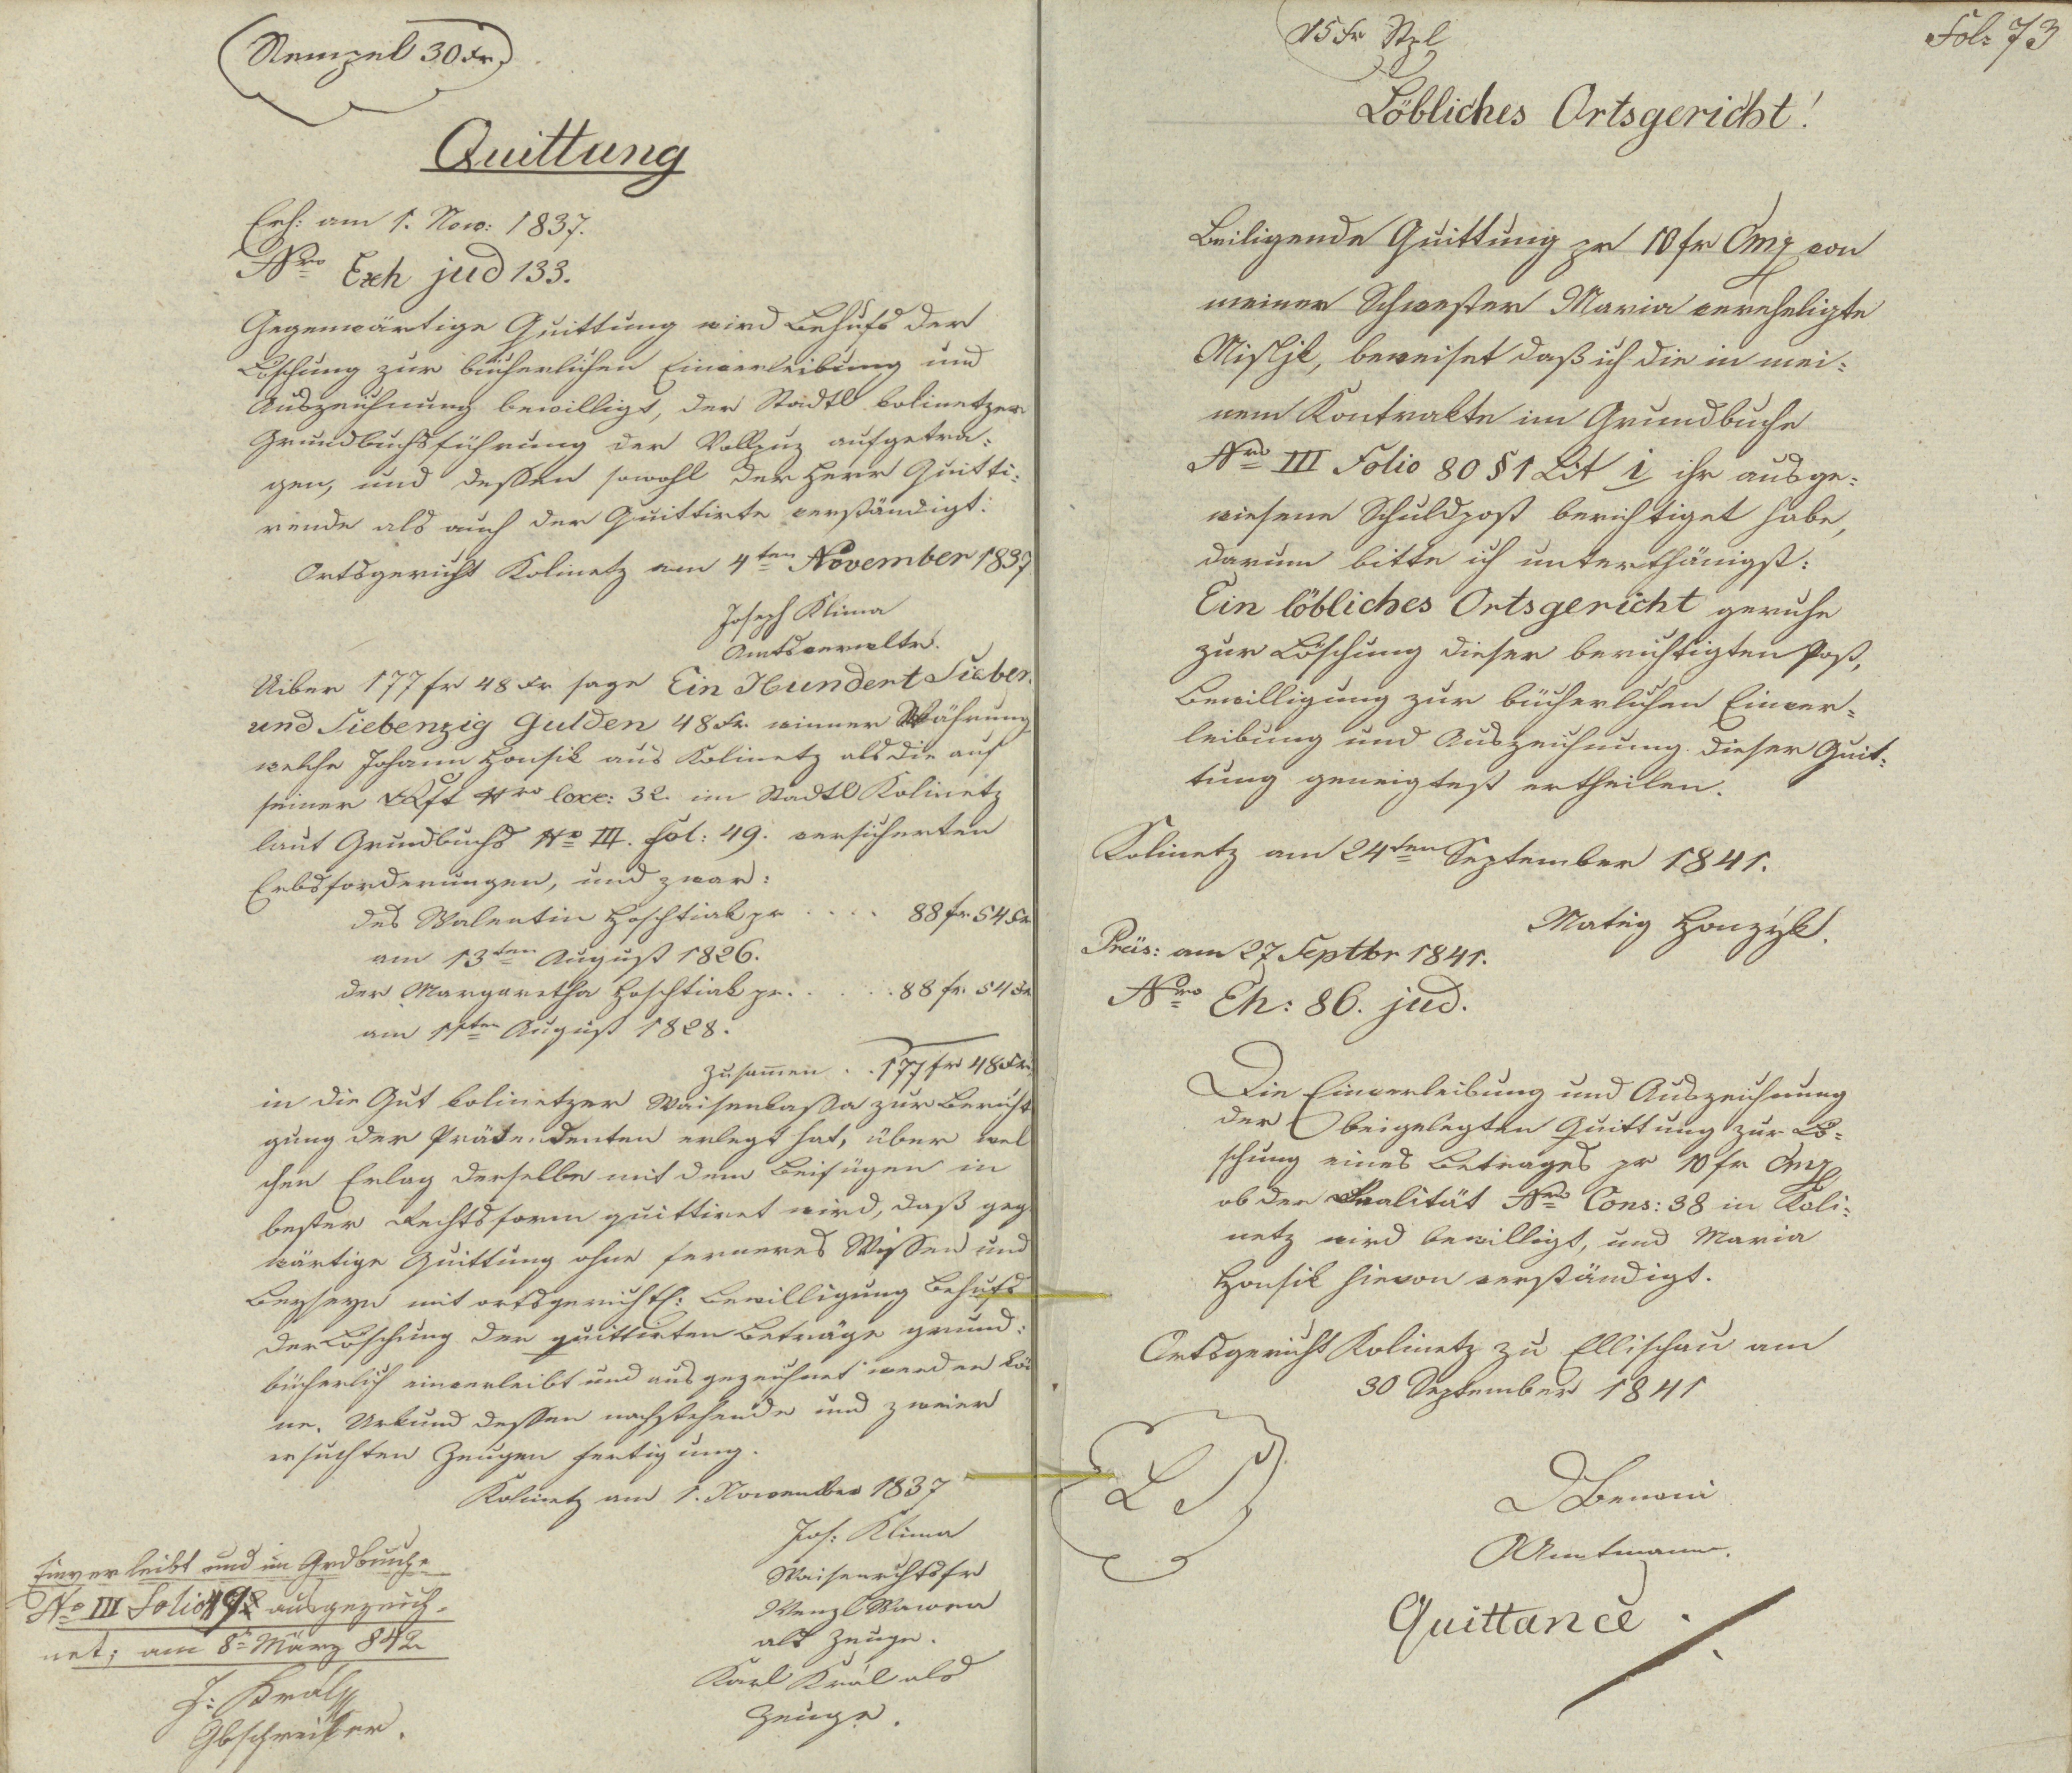 Stempel 30 Kr.
Quittung
Exh: am 1. Nov: 1837.
Nro Exh jud 133.
Gegenwärtige Quittung wird Behufs der
Löschung zur bücherlichen Einverleibung und
Auszeichnung bewilligt, der Stadtl kolinetzer
Grundbuchsführung der Vollzug aufgetra:
gen, und dessen sowohl der Herr Quitti:
rende als auch der Quittirte verständigt:
Ortsgericht Kolinetz am 4ten November 1837
Joseph Klima
Amtsverwalter.
Uiber 177 fr 48 Kr sage Ein Hundert Sieben
und Siebenzig Gulden 48 Kr. winner Währung
welche Johann Honsik aus Kolinetz als die auf
seiner Nro 32. im Stadtl Kolinetz
laut Grundbuchs No III. Fol: 49. versicherten
Erbsforderungen, und zwar:
des Walentin Hoschtiak pr .... 88 fr 54 Kr
am 13ten August 1826.
der Margaretha Hoschtiak pr. .... 88 fr. 54 Kr
am August 1828.
Zusamen .. 177 fr 48 Kr.
in die Gut kolinetzer Waisenkassa zur Bericht
gung der Prätendenten erlegt hat, über wel
chen Erlag derselbe mit dem Beifügen in
bester Rechtsform quittiret wird, daß geg
wärtige Quittung ohne ferneres Wissen und
Beyseyn mit ortsgerichtl: Bewilligung Behufs
der Löschung der quittirten Beträge grund:
bücherlich einverleibt und ausgezeichnet werden kö
ne. Urkund dessen nachstehende und zweier
ersuchten Zeugen fertigung.
Kolinetz am 1. November 1837
Jos: Klima
Wenzl Wawra
als Zeuge.
Karl Král als
Zeuge.
Einverleibt und im Grdbuche
No III Folio 49 ausgezeich.
net; am 8t März 842
J: Král
Gbschreiber.
15 Kr Stpl
Fol: 73
Löbliches Ortsgericht!
Beiligende Quittung pr 10 fr Cmz von
meiner Schwester Maria verehligte
Mistjk, beweiset daß ich die in mei:
nem Kontrakte im Grundbuche
Nro III Folio 80 § 1 Lit i ihr ausge:
wiesene Schuldpost berichtiget habe,
darum bitte ich unterthänigst:
Ein löbliches Ortsgericht geruhe
zur Löschung dieser berichtigten Post,
Bewilligung zur bücherlichen Einver:
leibung und Auszeichnung dieser Quit:
tung geneigtest ertheilen.
Kolinetz am 24ten September 1841.
Matieg Honzyk.
Präs: am 27 Septbr 1841.
Nro Eh: 86. jud.
Die Einverleibung und Auszeichnung
der beigelegten Quittung zur Lö:
schung eines Betrages pr 10 fr Cmz
ob der Realität Nro Cons: 38 in Koli:
netz wird bewilligt, und Maria
Honsik hievon verständigt.
Ortsgericht Kolinetz zu Ellischau am
30 September 1841
L S
Amtmann.
Quittance